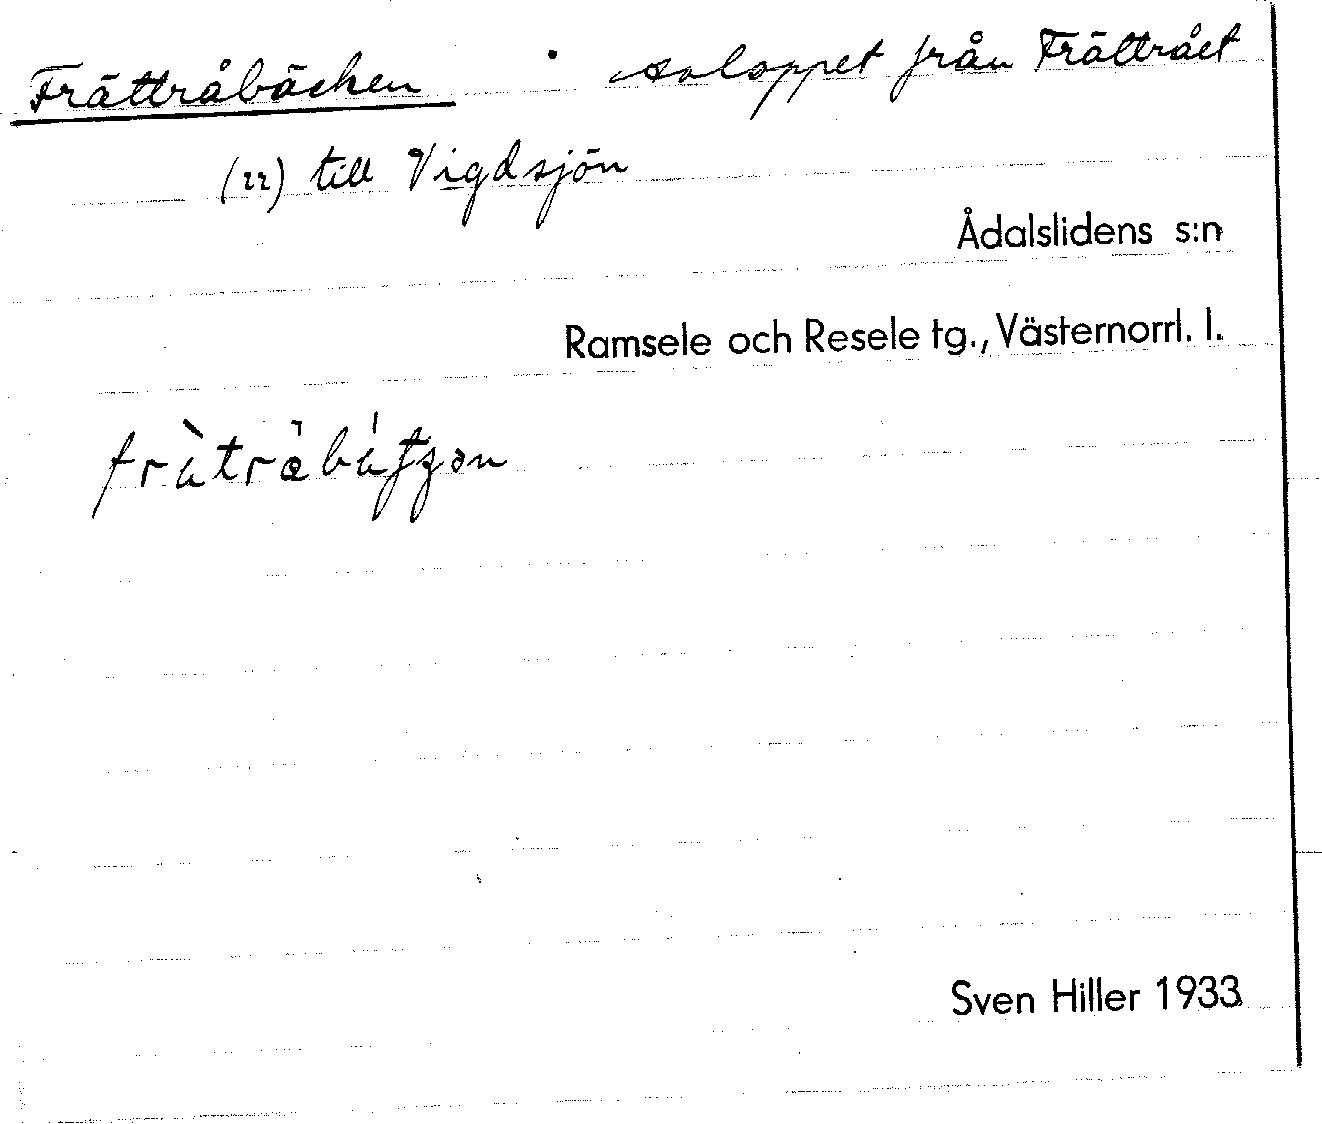 Frättråbäcken avloppet från Frättrået
(22) till Vigdsjön
Ådalslidens s:n
Ramsele och Resele tg., Västernorrl. l.
Sven Hiller 1933